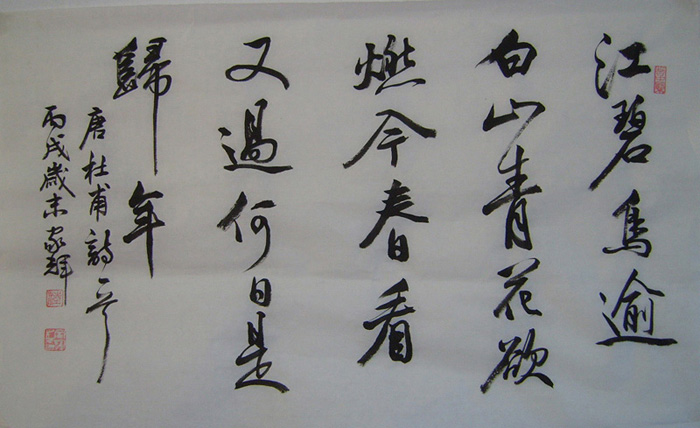 江碧鳥逾
白山青花欲
燃今春看
又過何日是
歸年
唐杜甫詩一首
丙戌歲末家輝